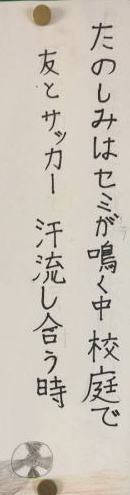 たのしみはセミが鳴く中 校庭で
友とサッカー 汗流し合う時